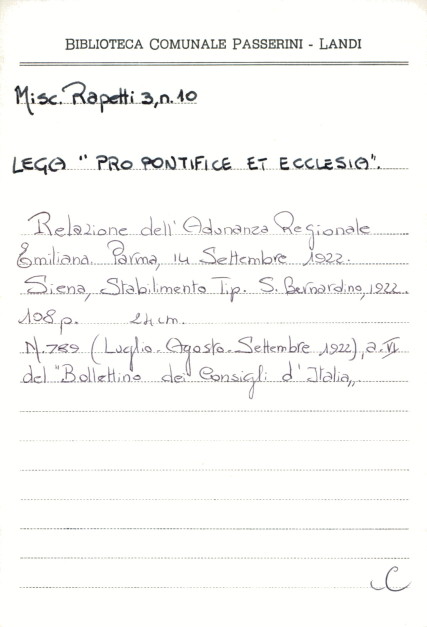 BIBLIOTECA COMUNALE PASSERINI - LANDI
Misc. Rapetti 3, n. 10
LEGA " PRO PONTIFICE ET ECCLESIA".
Relazione dell'Adunanza Regionale
Emiliana. Parma, 14 Settembre 1922.
Siena, Stabilimento Tip. S. Bernardino, 1922.
108 p. 24 cm.
N. 789 (Luglio-Agosto-Settembre 1922), a. VI
del "Bollettino dei Consigli d'Italia„.
C